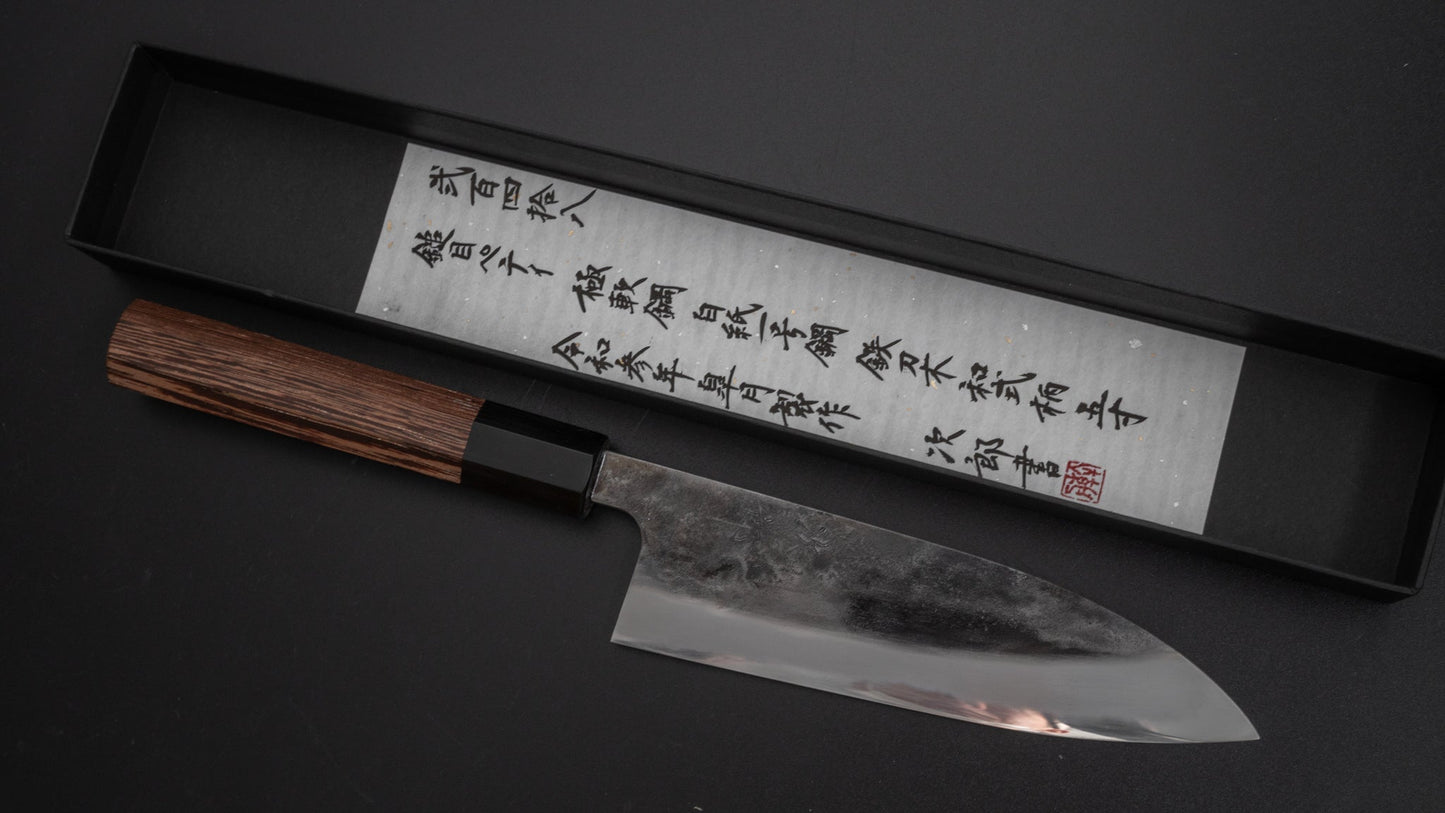 弐百四拾八
鎚目ペティ 極軟鋼 白紙一号鋼 鉄刀木 和式柄 五寸
令和参年皐月製作 次郎書